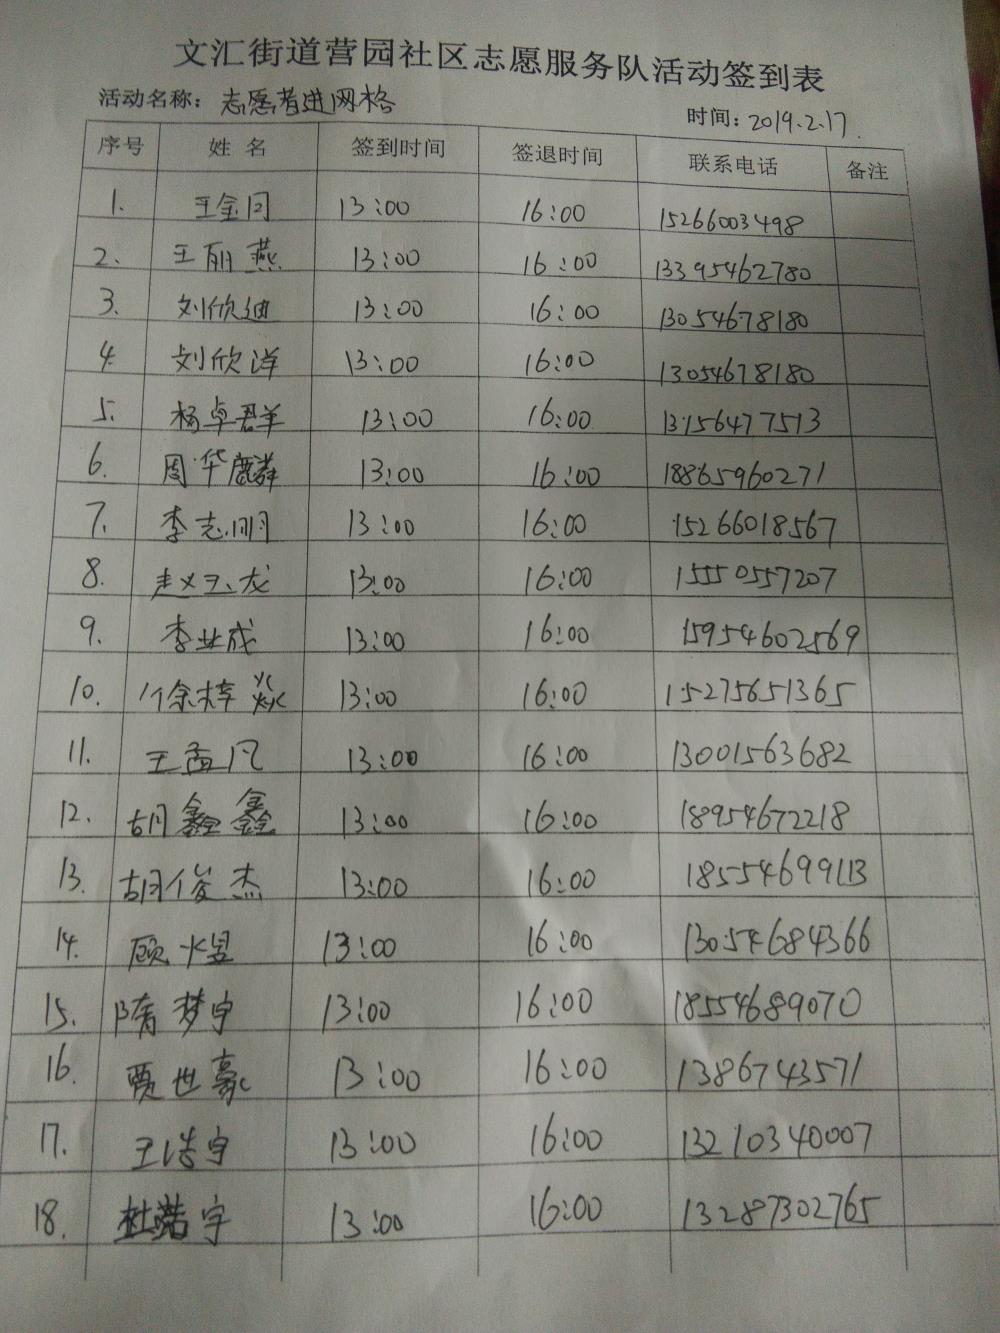 文汇街道营园社区志愿服务队活动签到表
活动名称：志愿者进网格 时间：2019.2.17.
序号 姓名 签到时间 签退时间 联系电话 备注
1. 王金同 13:00 16:00 15266003498
2. 王丽燕 13:00 16:00 13395462780
3. 刘欣迪 13:00 16:00 13054678180
4. 刘欣洋 13:00 16:00 13054678180
5. 杨卓群 13:00 16:00 13156477513
6. 周华麟 13:00 16:00 18865960271
7. 李志明 13:00 16:00 15266018567
8. 赵玉龙 13:00 16:00 15550557207
9. 李业成 13:00 16:00 15954602569
10. 徐梓焱 13:00 16:00 15275651365
11. 王孟凡 13:00 16:00 13001563682
12. 胡鑫鑫 13:00 16:00 18954672218
13. 胡俊杰 13:00 16:00 18554699113
14. 顾煜 13:00 16:00 13054684366
15. 隋梦宇 13:00 16:00 18554689070
16. 贾世豪 13:00 16:00 1386743571
17. 王浩宇 13:00 16:00 13210340007
18. 杜浩宇 13:00 16:00 13287302765